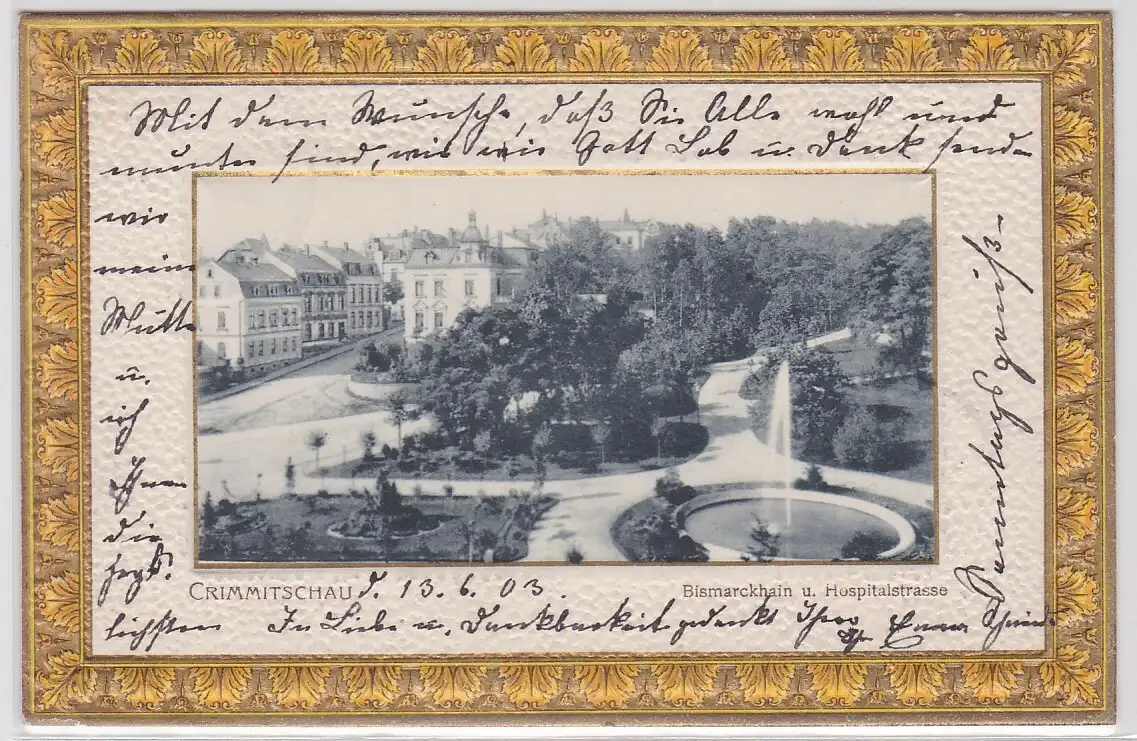 Mit dem Wunsche, daß Sie Alle wohl und
munter sind, wie wir Gott Lob u. Dank sende
wir
meine
Mutter
u.
ich
Ihnen
die
herz-
lichsten
Sonntagsgrüße
CRIMMITSCHAU d. 13.6.03.
Bismarckhain u. Hospitalstrasse
In Liebe u. Dankbarkeit gedenkt Ihrer
Emma